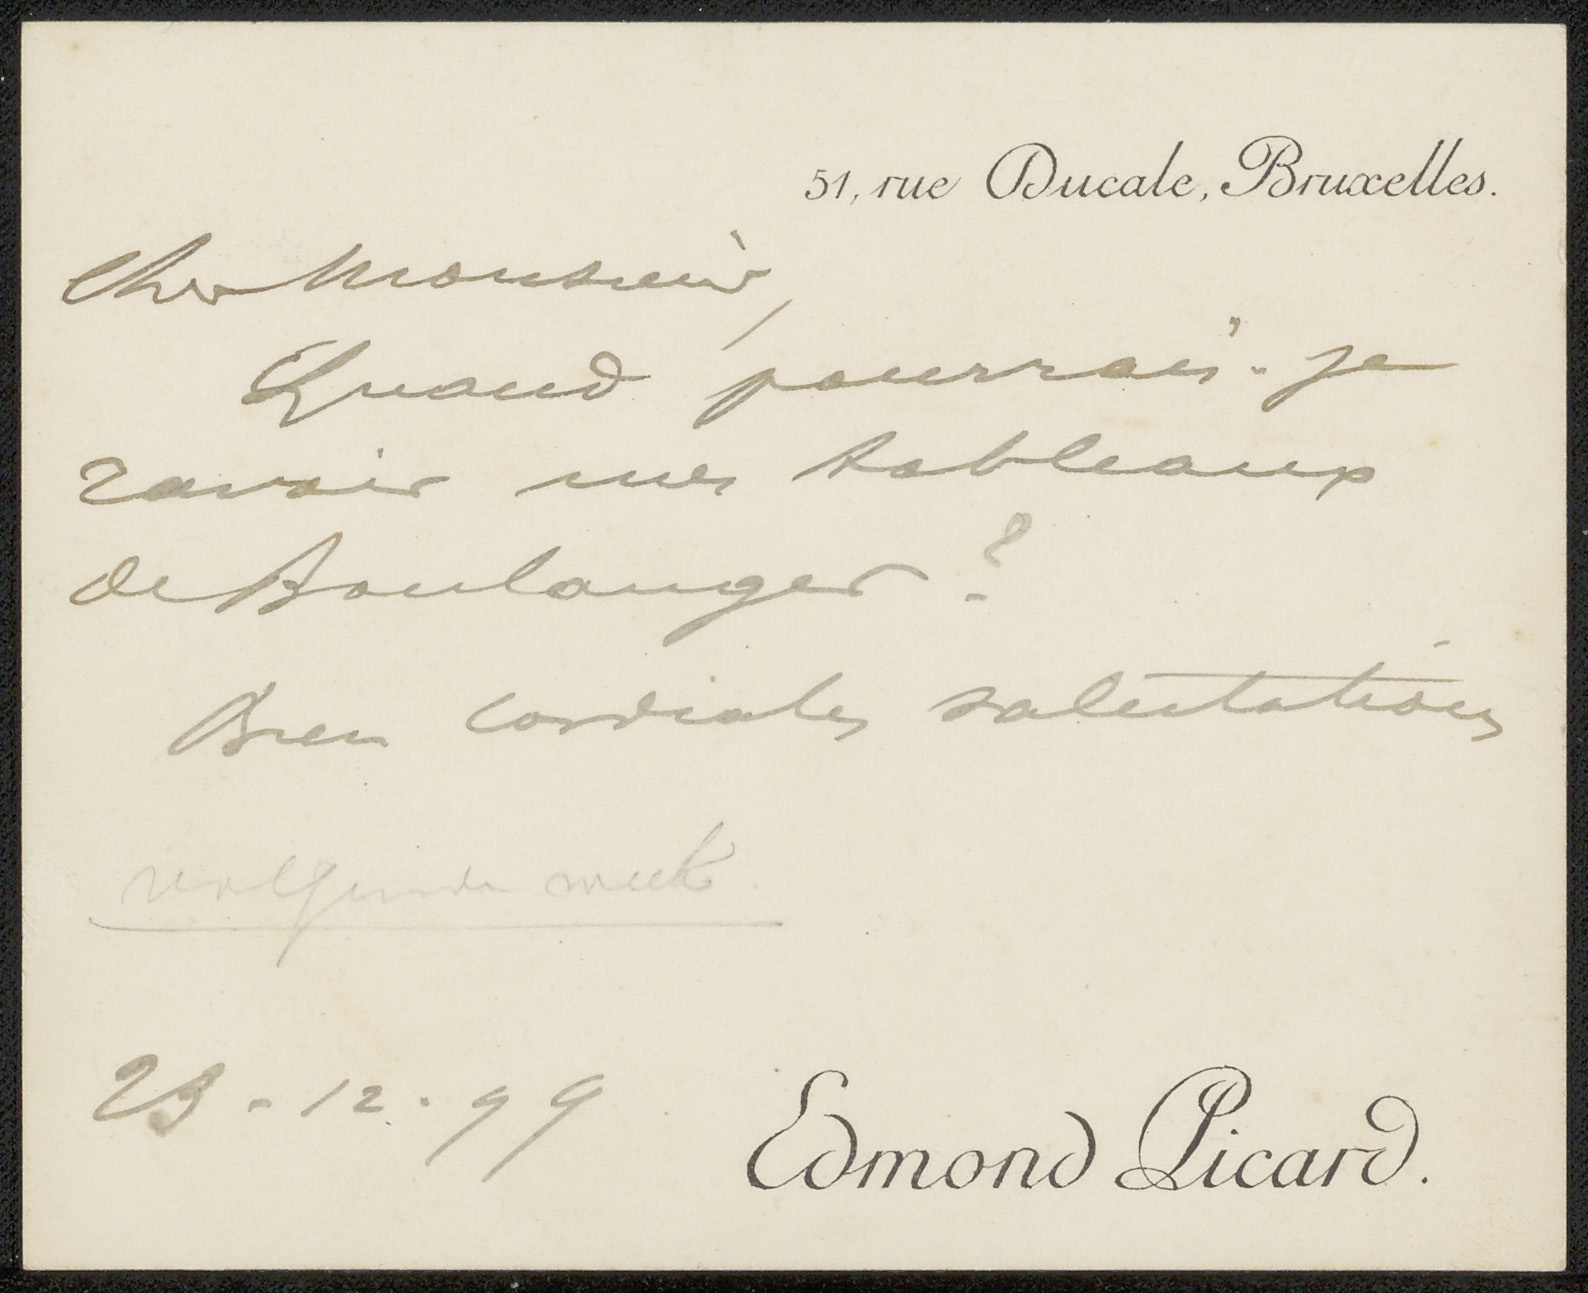 51, rue Ducale, Bruxelles.
Cher Monsieur,
Quand pourrais-je
ravoir mes tableaux
de Boulanger ?
Bien cordiales salutations
volgende week
23-12.99
Edmond Picard.